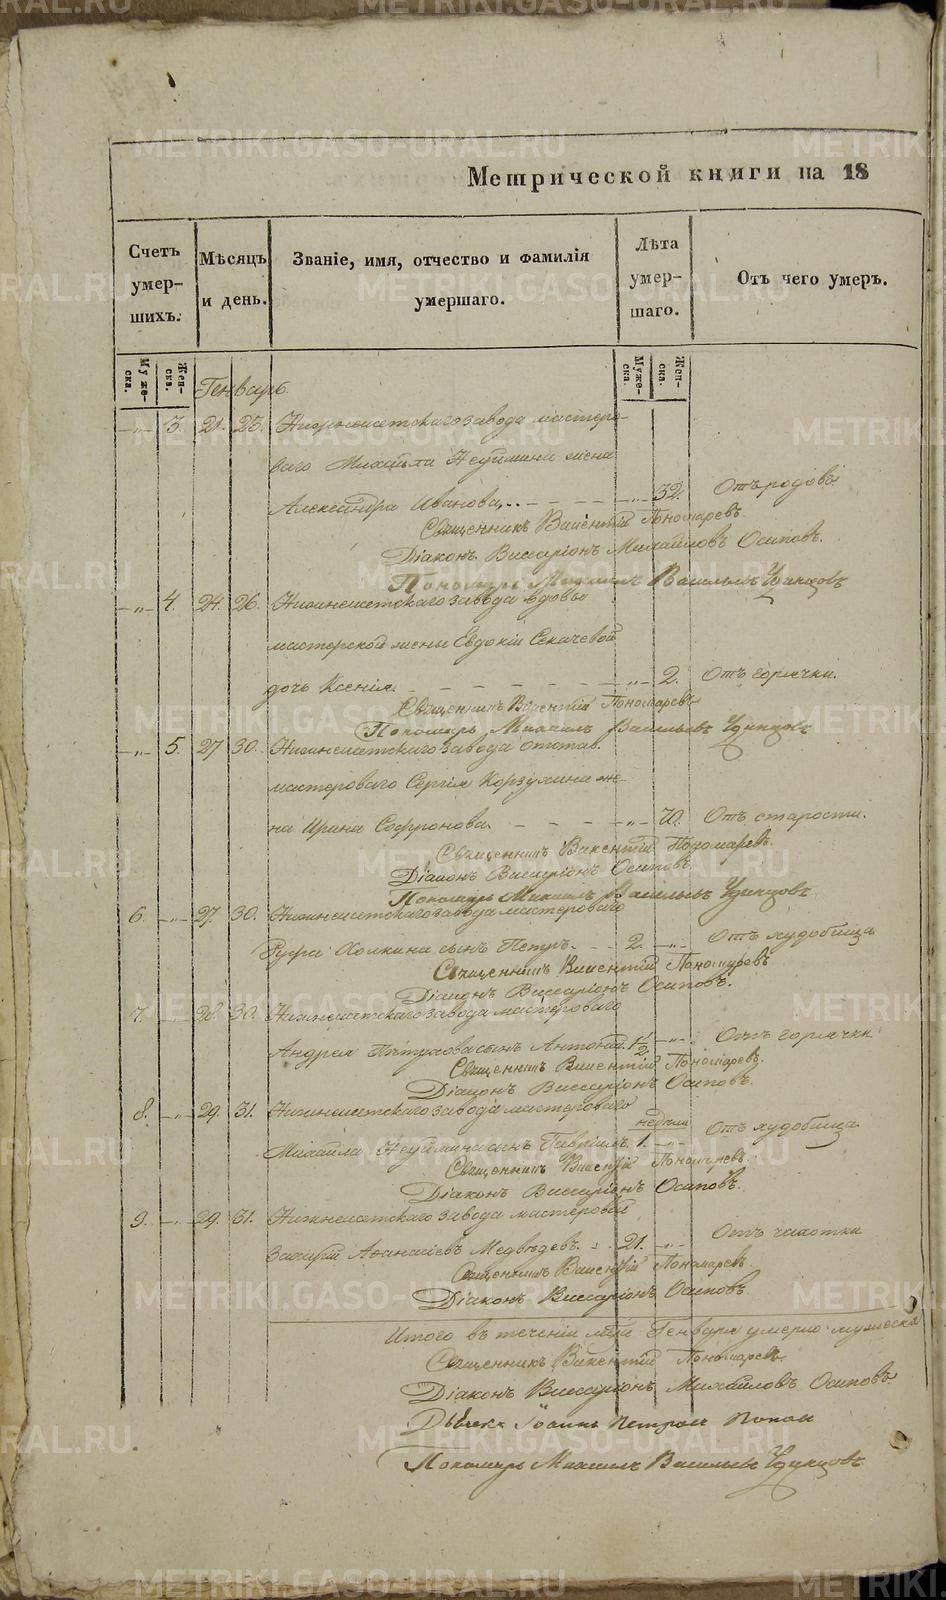 Метрической книги на 18
Счетъ умершихъ.
Мѣсяцъ и день.
Званіе, имя, отчество и фамилія умершаго.
Лѣта умершаго.
Отъ чего умеръ.
Мужеска. Женска. Мужеска. Женска.
Генварь
3. 21. 23. Нижнеисетскаго завода мастеро-
ваго Михайла Неуймина жена
Александра Иванова. 32. Отъ родовъ.
Священникъ Викентій Пономаревъ.
Діаконъ Виссаріонъ Михайловъ Осиповъ.
Пономарь Михаилъ Васильевъ Удинцовъ
4. 24. 26. Нижнеисетскаго завода вдовы
мастерской жены Евдокіи Секачевой
дочь Ксенія. 2. Отъ горячки.
Священникъ Викентій Пономаревъ
Пономарь Михаилъ Васильевъ Удинцовъ
5. 27 30. Нижнеисетскаго завода отстав.
мастероваго Сергія Корзухина же-
на Ирина Софронова. 70. Отъ старости.
Священникъ Викентій Пономаревъ.
Діаконъ Виссаріонъ Осиповъ.
Пономарь Михаилъ Васильевъ Удинцовъ
6. 27. 30. Нижнеисетскаго завода мастероваго
Холкина сынъ Петръ. 2. Отъ худобища
Священникъ Викентій Пономаревъ
Діаконъ Виссаріонъ Осиповъ.
7. 28. 30. Нижнеисетскаго завода мастероваго
Андрея Пѣтухова сынъ Антоній. 1 1/2. Отъ горячки.
Священникъ Викентій Пономаревъ.
Діаконъ Виссаріонъ Осиповъ.
8. 29. 31. Нижнеисетскаго завода мастероваго
недѣли
Михайла Неуймина сынъ Гавріилъ. 1. Отъ худобища
Священникъ Викентій Пономаревъ.
Діаконъ Виссаріонъ Осиповъ.
9. 29. 31. Нижнеисетскаго завода мастеровой
Аѳанасіевъ Медвѣдевъ. 21. Отъ чахотки
Священникъ Викентій Пономаревъ
Діаконъ Виссаріонъ Осиповъ
Итого въ теченіи Генваря умерло мужеска
Священникъ Викентій Пономаревъ
Діаконъ Виссаріонъ Михайловъ Осиповъ.
Дьячекъ Іоаннъ Петровъ Поповъ
Пономарь Михаилъ Васильевъ Удинцовъ
METRIKI.GASO-URAL.RU